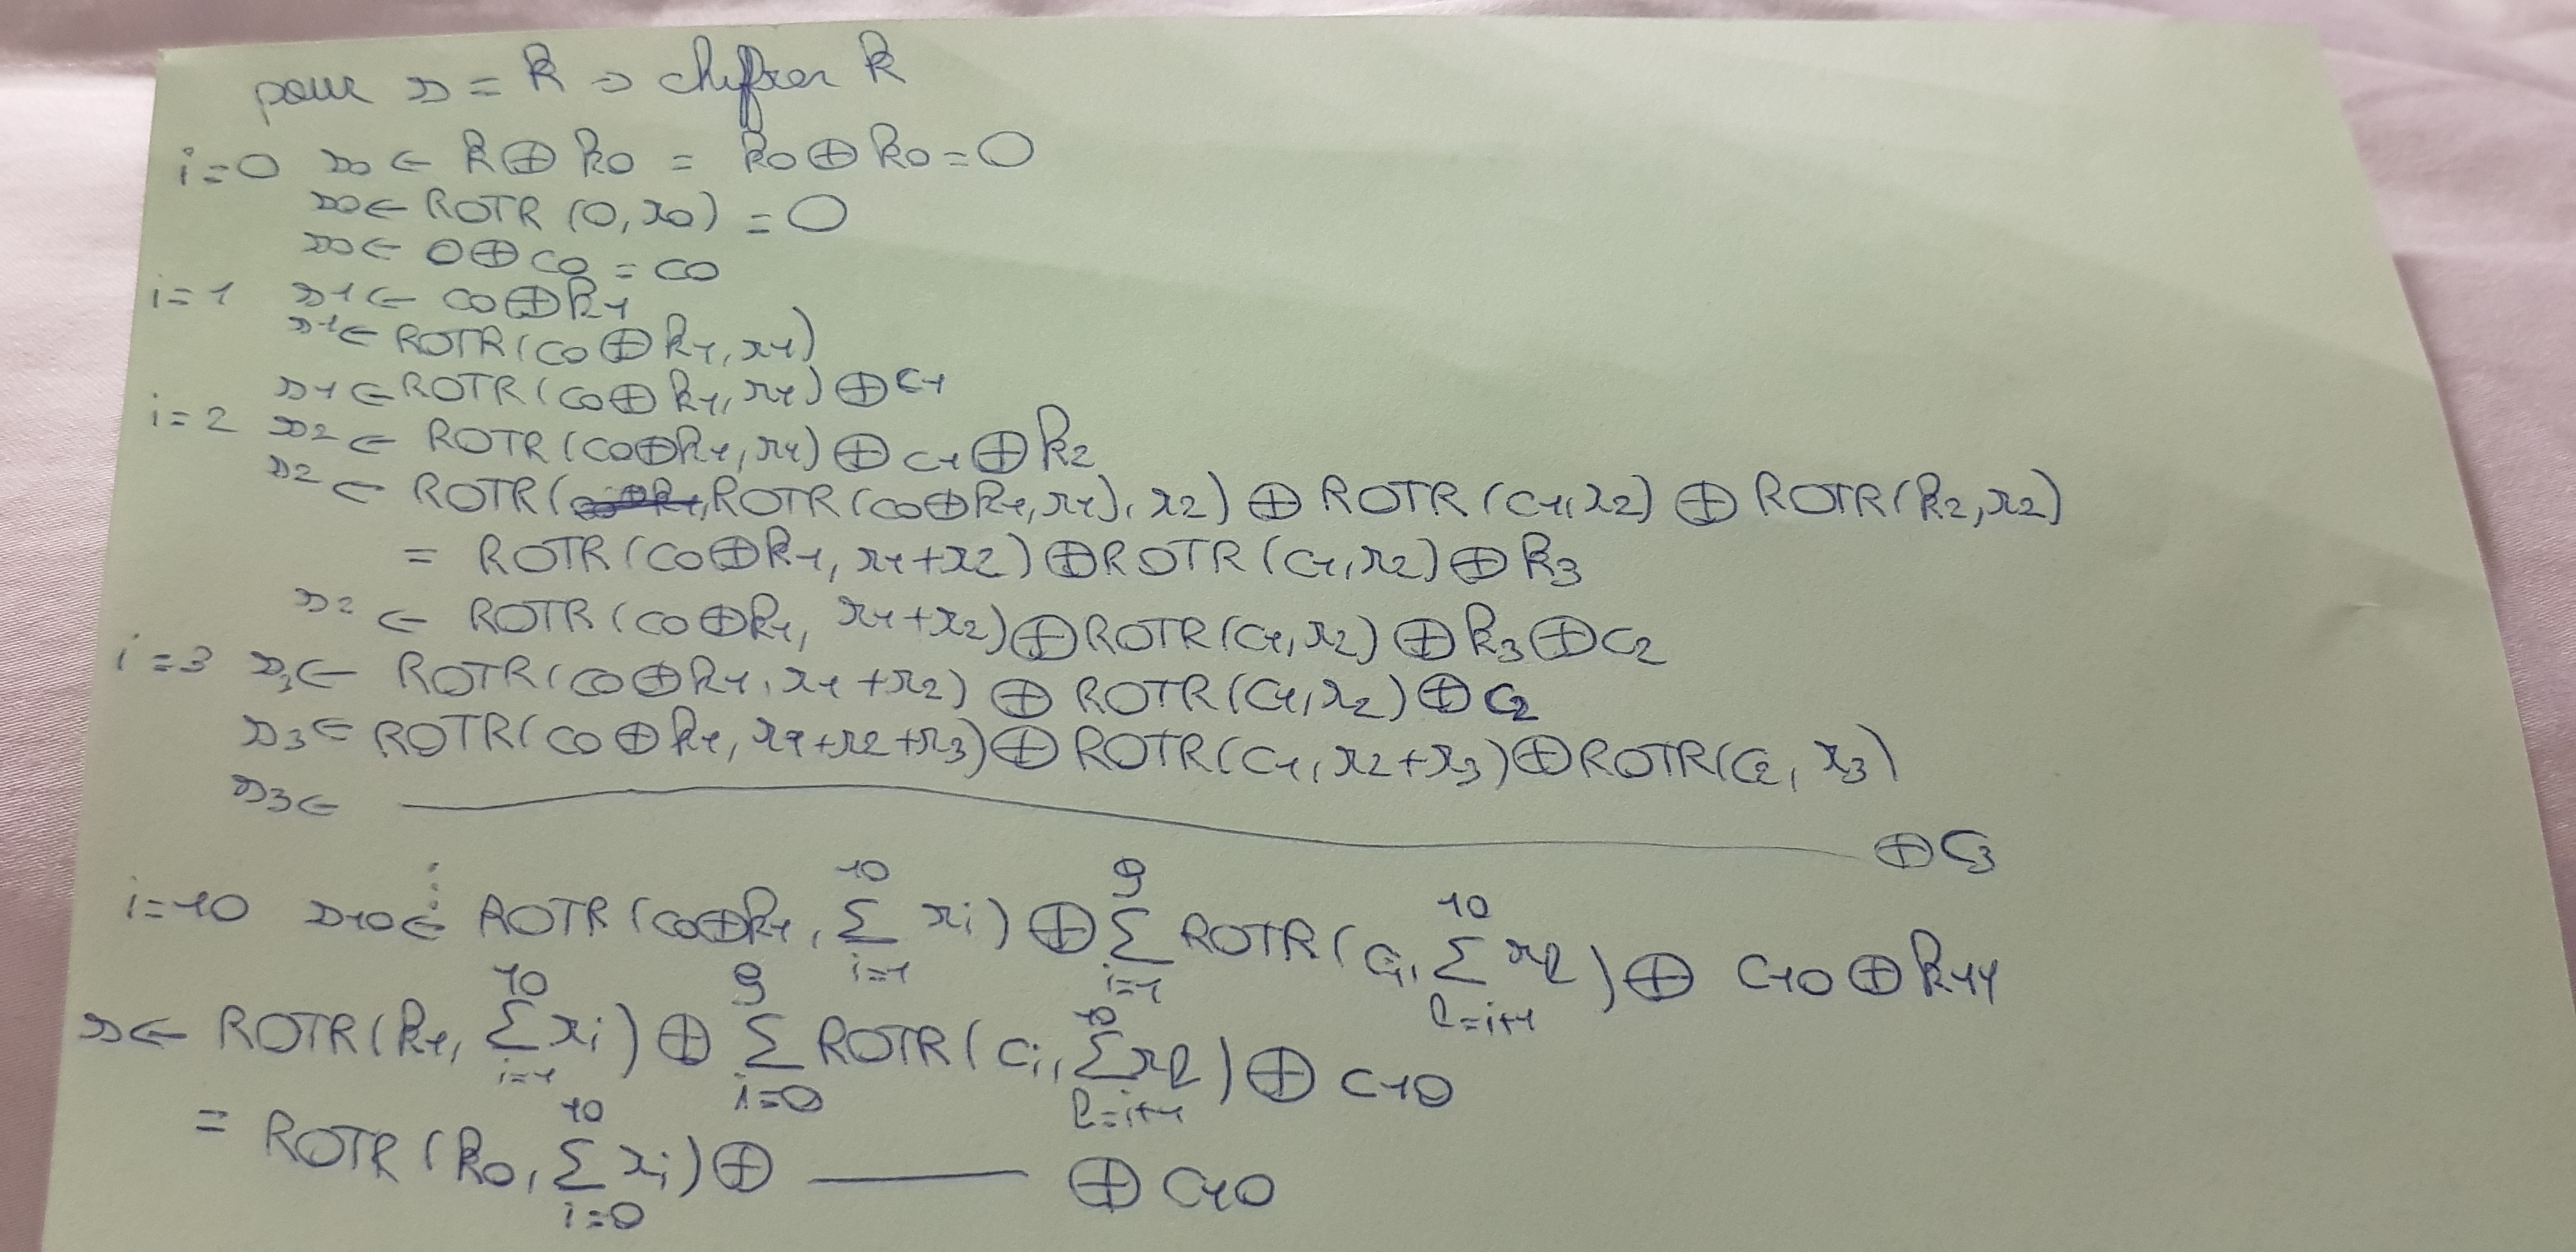 pour s = k → chiffrer k
i=0 s0 ← k ⊕ k0 = k0 ⊕ k0 = 0
s0 ← ROTR (0, r0) = 0
s0 ← 0 ⊕ c0 = c0
i=1 s1 ← c0 ⊕ k1
s1 ← ROTR(c0 ⊕ k1, r1)
s1 ← ROTR(c0 ⊕ k1, r1) ⊕ c1
i=2 s2 ← ROTR(c0 ⊕ k1, r1) ⊕ c1 ⊕ k2
s2 ← ROTR(ROTR(c0 ⊕ k1, r1), r2) ⊕ ROTR(c1, r2) ⊕ ROTR(k2, r2)
= ROTR(c0 ⊕ k1, r1+r2) ⊕ ROTR(c1, r2) ⊕ k3
s2 ← ROTR(c0 ⊕ k1, r1+r2) ⊕ ROTR(c1, r2) ⊕ k3 ⊕ c2
i=3 s3 ← ROTR(c0 ⊕ k1, r1+r2) ⊕ ROTR(c1, r2) ⊕ c2
s3 ← ROTR(c0 ⊕ k1, r1+r2+r3) ⊕ ROTR(c1, r2+r3) ⊕ ROTR(c2, r3)
s3 ← ——— ⊕ c3
⋮
i=10 s10 ← ROTR(c0 ⊕ k1, ∑_{i=1}^{10} ri) ⊕ ∑_{i=1}^{9} ROTR(ci, ∑_{l=i+1}^{10} rl) ⊕ c10 ⊕ k11
s ← ROTR(k1, ∑_{i=1}^{10} ri) ⊕ ∑_{i=0}^{9} ROTR(ci, ∑_{l=i+1}^{10} rl) ⊕ c10
= ROTR(k0, ∑_{i=0}^{10} ri) ⊕ ——— ⊕ c10